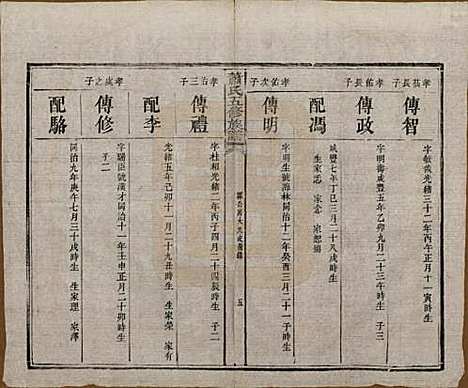 孝祜長子
傳智
字敏哉光緒三十二年丙午正月十一寅時生
孝祐長子
傳政
字明海咸豐五年乙卯九月二十三午時生 子三
配馮
咸豐七年丁巳三月二十八戌時生
生家忠 家意 家恕
孝祐次子
傳明
字明生號源林同治十二年癸酉三月二十一子時生
蕭氏五修族譜
五
孝治三子
傳禮
字杜和光緒二年丙子四月二十四辰時生 子二
配李
光緒五年己卯十一月二十九丑時生 生家榮 家有
孝成之子
傳修
字賜臣號漢才同治十一年壬申正月二十卯時生
子二
配駱
同治九年庚午七月三十戌時生 生家理 家澤